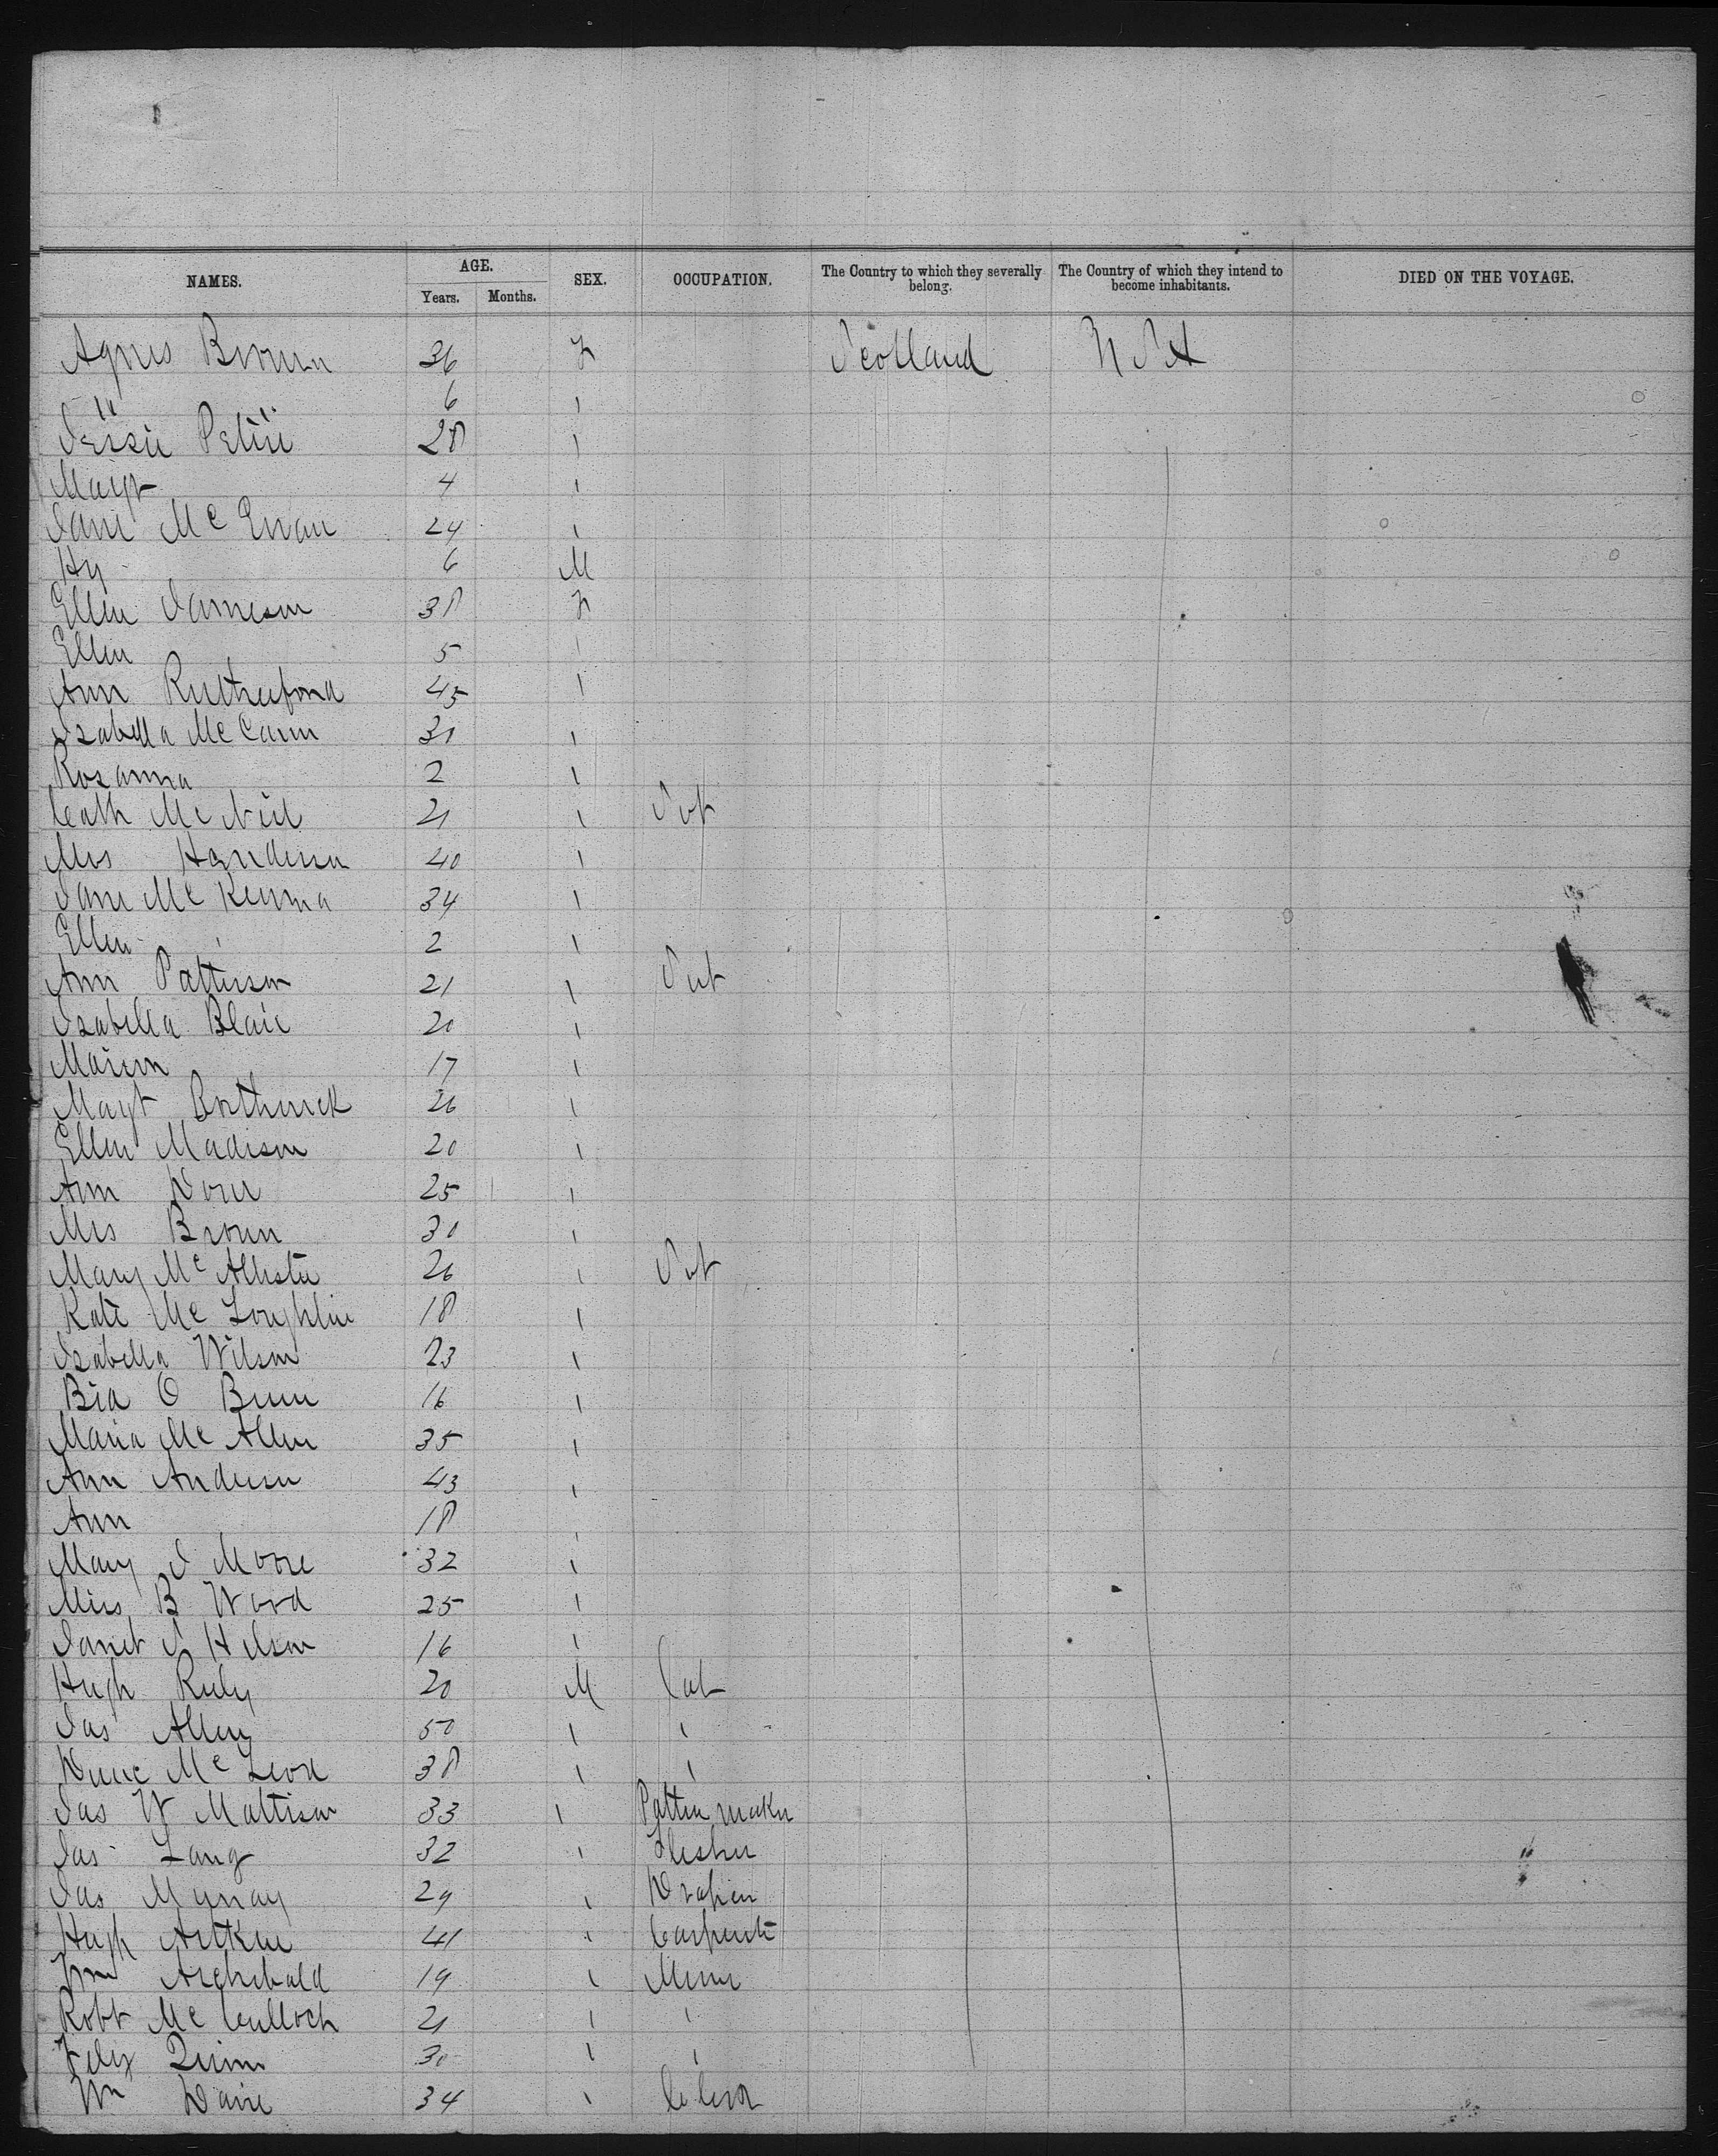 NAMES. AGE. SEX. OCCUPATION. The Country to which they severally belong. The Country of which they intend to become inhabitants. DIED ON THE VOYAGE.
Years. Months.
Agnes Brown 36 F Scotland U S A
" " 6 "
Jessie Petrie 28 "
Margt 4 "
Jane McEwan 24 "
Hy 6 M
Ellen Jameson 38 F
Ellen 5 "
Ann Rutherford 45 "
Isabella McCann 31 "
Rosanna 2 "
Cath McNeil 21 " Svt
Mrs Henderson 40 "
Jane McKenna 34 "
Ellen 2 "
Ann Patterson 21 " Svt
Isabella Blair 20 "
Marion 17 "
Margt Borthwick 26 "
Ellen Madison 20 "
Ann 25 "
Mrs Brown 30 "
Mary McAllister 26 " Svt
Kate McLoughlin 18 "
Isabella Wilson 23 "
Bid O Brien 16 "
Maria McAllen 35 "
Ann Anderson 43 "
Ann 18 "
Mary J Moore 32 "
Miss B Ward 25 "
Janet J 16 "
Hugh 20 M Lab
Jas Allen 50 " "
Dunc McLeod 38 " "
Jas W Mattison 33 " Pattern maker
Jas Lang 32 " Flesher
Jas Murray 29 " Draper
Hugh Aitken 41 " Carpenter
Wm Archibald 19 " Miner
Robt McCulloch 21 " "
Felix Quinn 30 " "
Wm 34 " Clerk